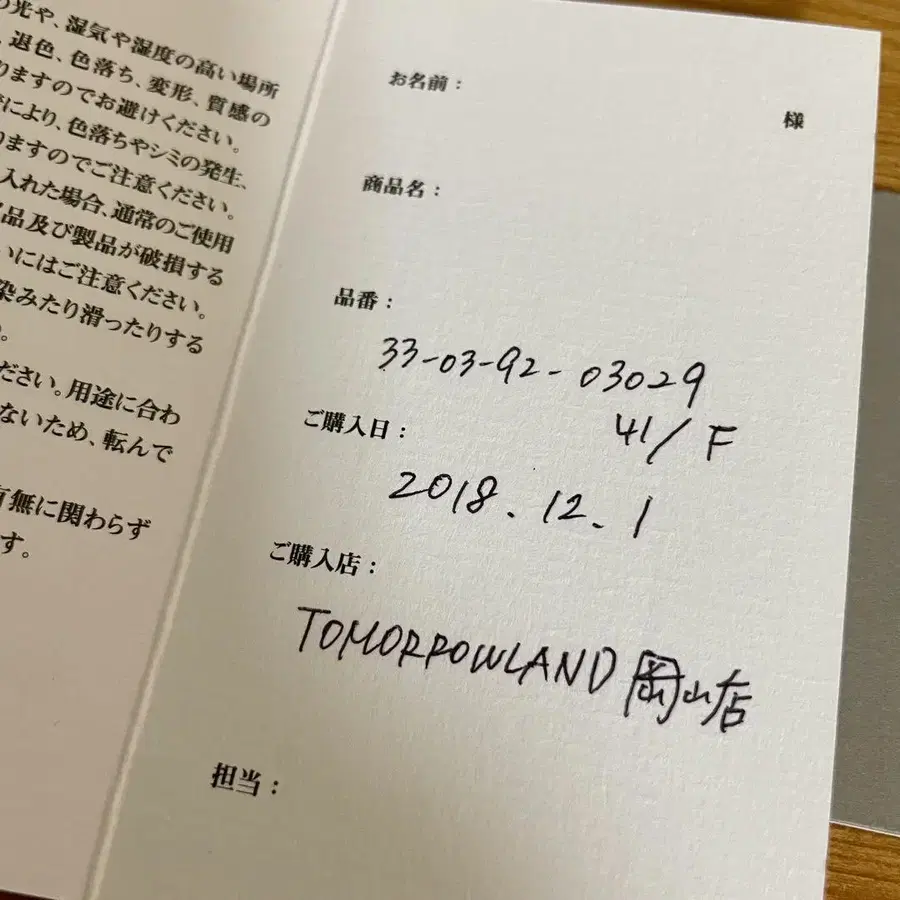 の光や、湿気や湿度の高い場所
、退色、色落ち、変形、質感の
りますのでお避けください。
により、色落ちやシミの発生、
りますのでご注意ください。
入れた場合、通常のご使用
品及び製品が破損する
いにはご注意ください。
染みたり滑ったりする
。
ださい。用途に合わ
ないため、転んで
有無に関わらず
す。
お名前：
様
商品名：
品番：
33-03-92-03029
41/F
ご購入日：
2018.12.1
ご購入店：
TOMORROWLAND 岡山店
担当：